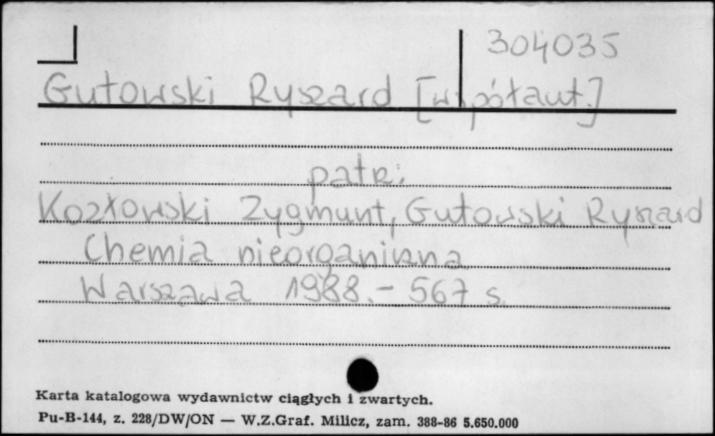 304035
Gutowski Ryszard [współaut.]
patrz:
Kozłowski Zygmunt, Gutowski Ryszard
Chemia nieorganiczna
Warszawa 1988. - 567 s.
Karta katalogowa wydawnictw ciągłych i zwartych.
Pu-B-144, z. 228/DW/ON — W.Z.Graf. Milicz, zam. 388-86 5.650.000